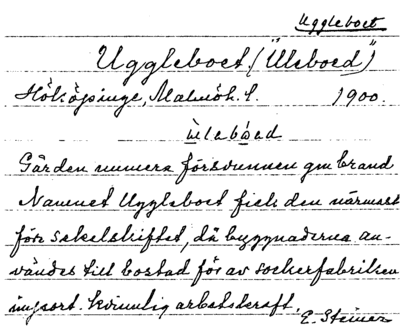 Uggleboet
Uggleboet ("Uleboed")
Hököpinge, Malmöh. l. 1900.
ùlebóed
Gården numera försvunnen gm brand
Namnet Uggleboet fick den närmast
före sekelskiftet, då byggnaderna an-
vändes till bostad för av sockerfabriken
import. kvinnlig arbetskraft.
E. Steiner